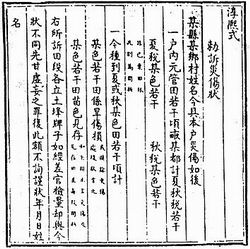 淳熙式
勅訴災傷狀
某縣某鄉村姓名今具本戶災傷如後
一戶內元管田若干頃畝某都計夏秋稅若干
夏稅某色若干 秋稅某色若干
一今種到夏或秋某色田若干頃計
某色若干田係旱傷損
某色若干田苗色見存
右所訴田段各立土埄牌子如經差官檢量却與今
狀不同先甘虛妄之罪復此額不詞謹狀年月日姓
名